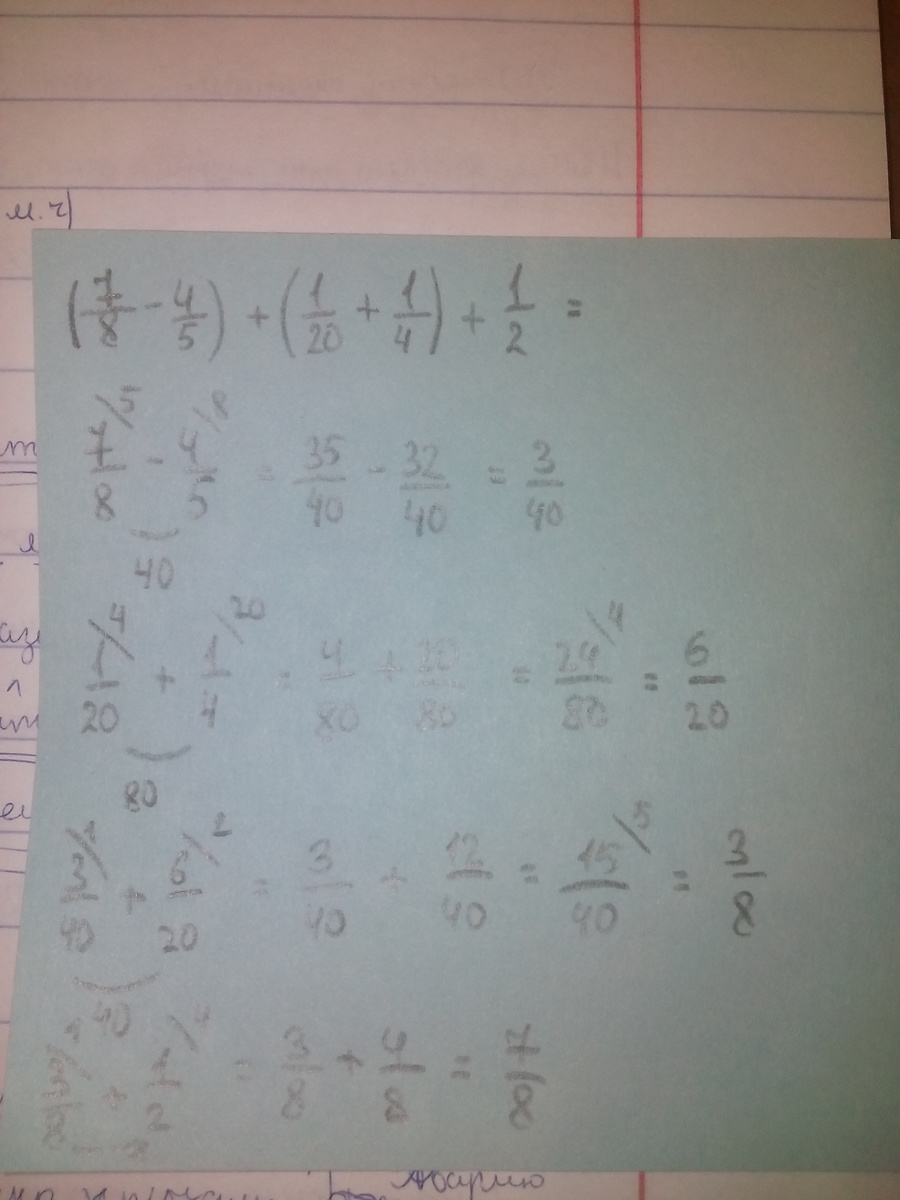 м.ч)
(7/8 - 4/5) + (1/20 + 1/4) + 1/2 =
7/8 /5 - 4/5 /8 = 35/40 - 32/40 = 3/40
40
1/20 /4 + 1/4 /20 = 4/80 + 20/80 = 24/80 /4 = 6/20
80
3/40 /1 + 6/20 /2 = 3/40 + 12/40 = 15/40 /5 = 3/8
40
3/8 /1 + 1/2 /4 = 3/8 + 4/8 = 7/8
8